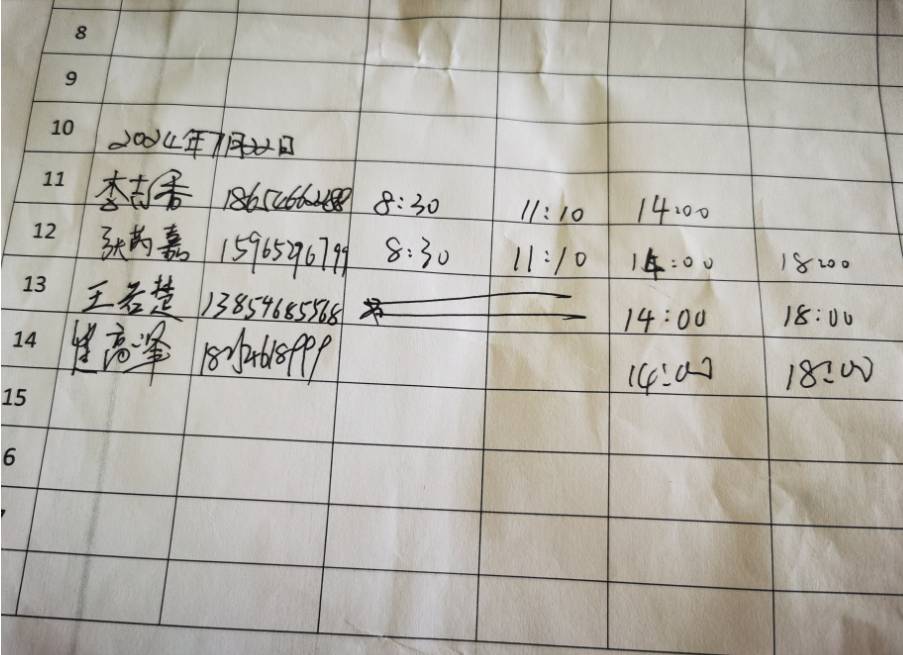 8
9
10 2024年7月22日
11 李吉香 8:30 11:10 14:00
12 张芮嘉 15965296799 8:30 11:10 14:00 18:00
13 王若楚 13854685568 14:00 18:00
14 高峰 14:00 18:00
15
6